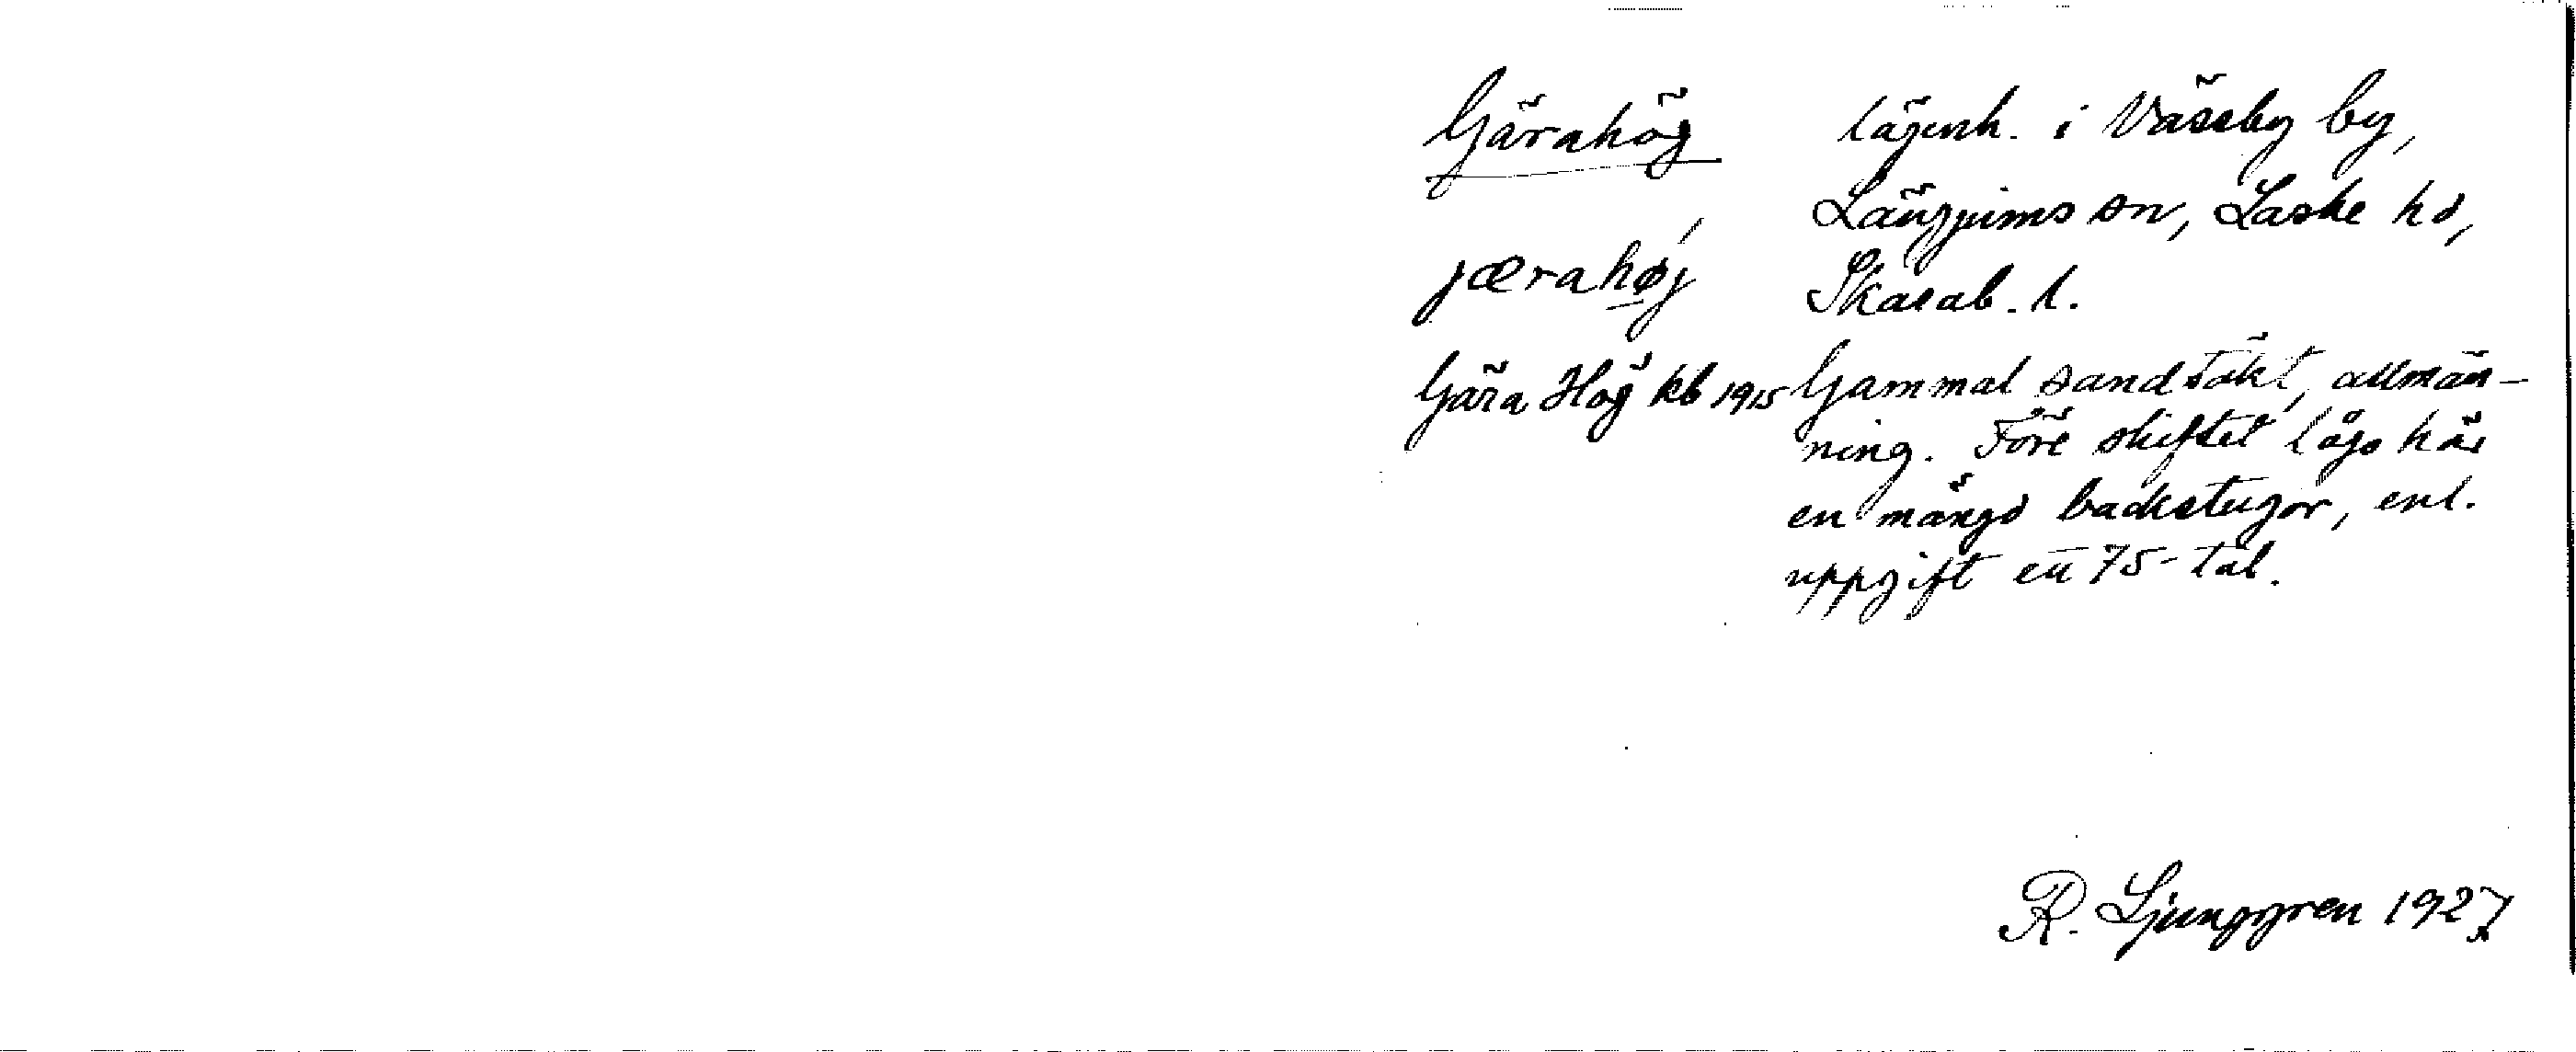 Gärahög
jærahøj
Gära Hög kb 1915
lägenh. i Väseby by,
Längjums sn, Laske hd,
Skarab. l.
Gammal sandtäkt, allmän-
ning. Före skiftet lågo här
en mängd backstugor, enl.
uppgift ett 75-tal.
R. Ljunggren 1927